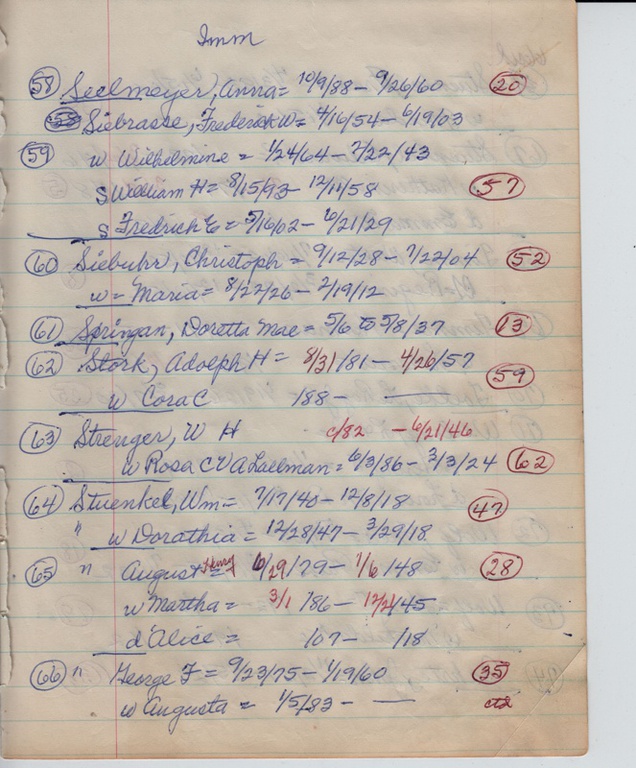 Imm
58 Seelmeyer, Anna = 10/9/88 - 9/26/60 20
Siebrasse, Frederick W = 4/16/54 - 6/19/03
59 w Wilhelmine = 1/24/64 - 7/22/43
s William H = 8/15/93 - 12/11/58 57
s Fredrich E = 5/16/02 - 6/21/29
60 Siebuhr, Christoph = 9/12/28 - 7/22/04 52
w = Maria = 8/22/26 - 2/19/12
61 Springan, Doretta Mae = 5/6 to 5/8/37 13
62 Stork, Adolph H = 8/31/81 - 4/26/57
w Cora C /88 - — 59
63 Strenger, W H c/82 - 6/21/46
w Rosa C = 6/3/86 - 3/3/24 62
64 Stuenkel, Wm = 7/17/40 - 12/8/18 47
" w Dorathia = 12/28/47 - 3/29/18
65 " August Henry = 6/29/79 - 1/6/48 28
w Martha = 3/1/86 - 12/21/45
d Alice = /07 - /18
66 " George F = 9/23/75 - 1/19/60 35
w Augusta = 1/5/83 - —